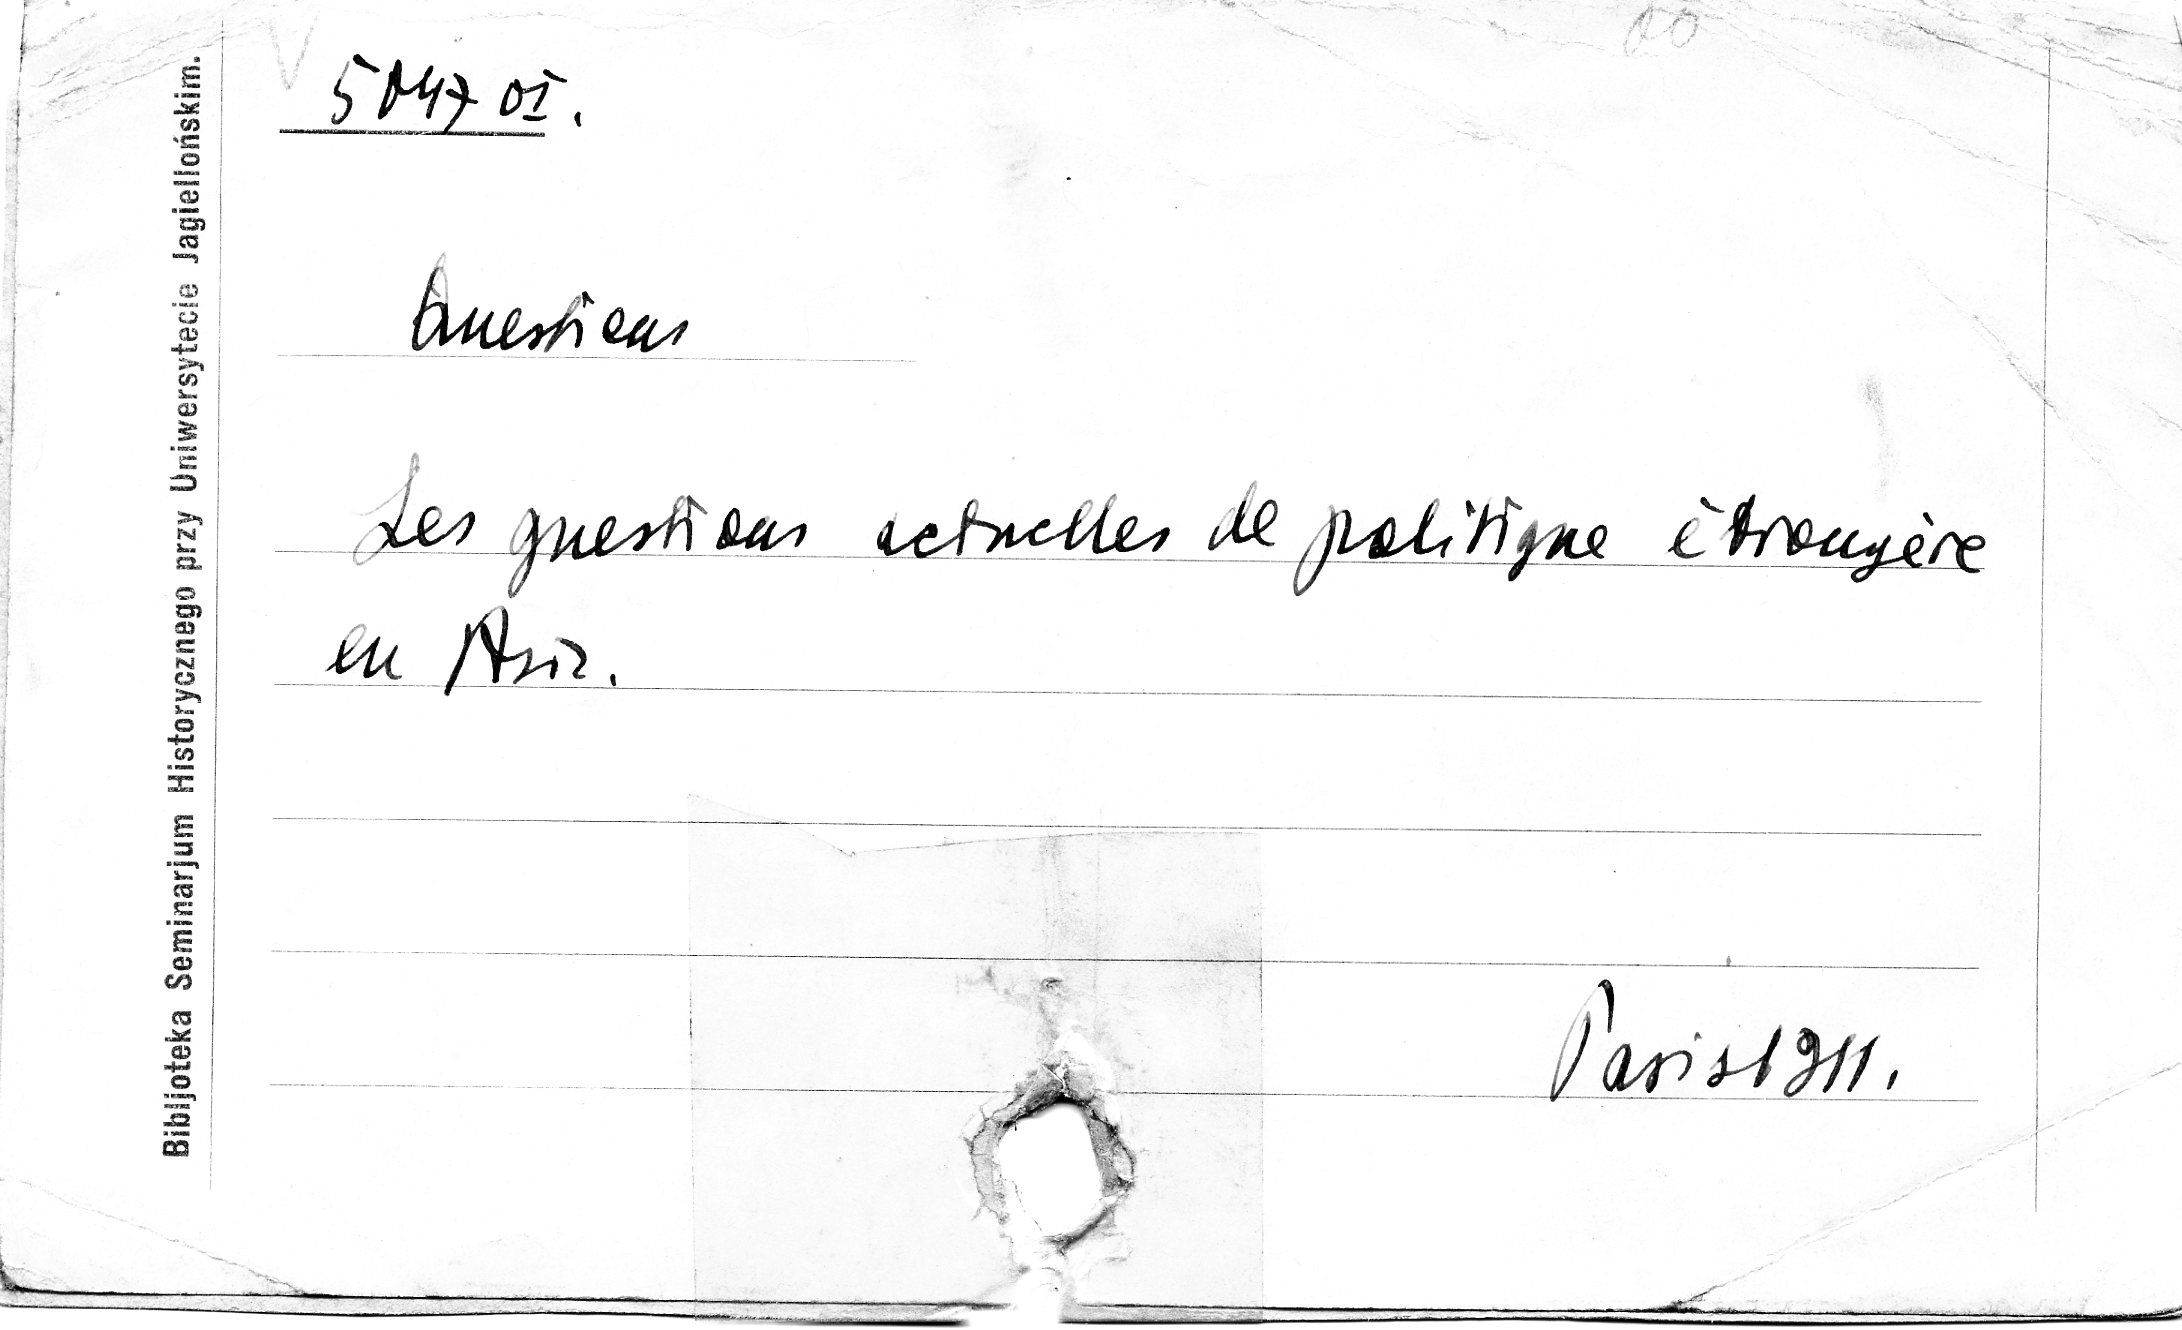 5047 VI.
Questions
Les questions actuelles de politique étrangère
en Asie.
Paris 1911.
Bibljoteka Seminarjum Historycznego przy Uniwersytecie Jagiellońskim.